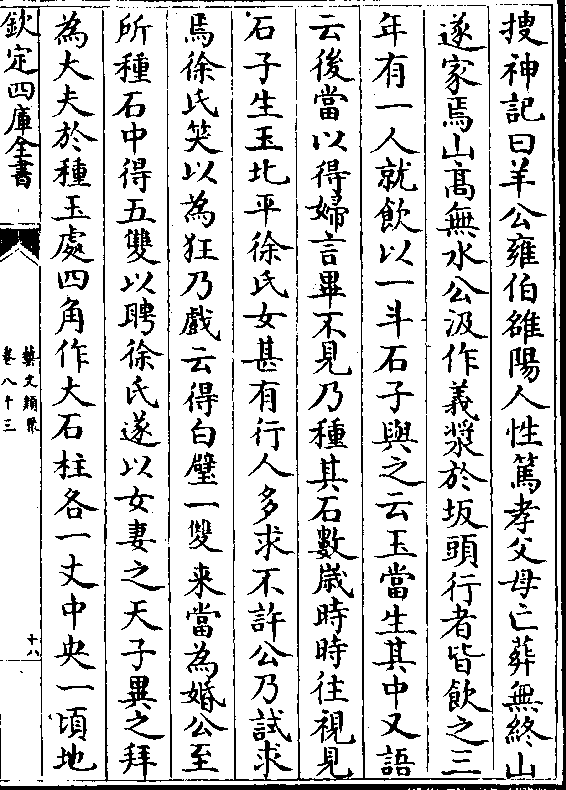 搜神記曰羊公雍伯雒陽人性篤孝父母亡葬無終山
遂家焉山髙無水公汲作義漿於坂頭行者皆飲之三
年有一人就飲以一斗石子與之云玉當生其中又語
云後當以得婦言畢不見乃種其石數歳時時往視見
石子生玉北平徐氏女甚有行人多求不許公乃試求
焉徐氏笑以為狂乃戲云得白璧一雙來當為婚公至
所種石中得五雙以聘徐氏遂以女妻之天子異之拜
為大夫於種玉處四角作大石柱各一丈中央一頃地
欽定四庫全書
藝文類聚
卷八十三
十八